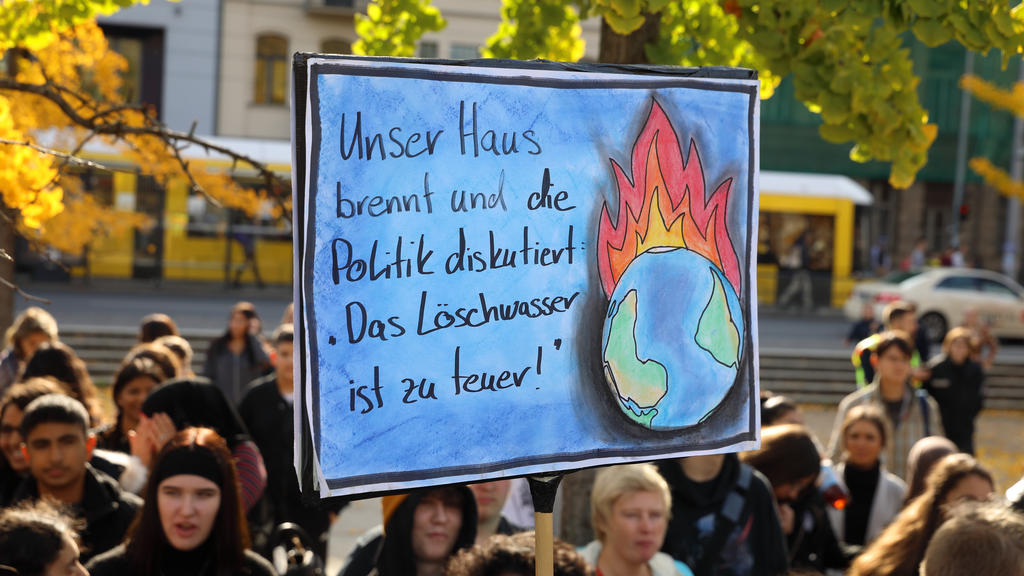 Unser Haus
brennt und die
Politik diskutiert:
„Das Löschwasser
ist zu teuer!"